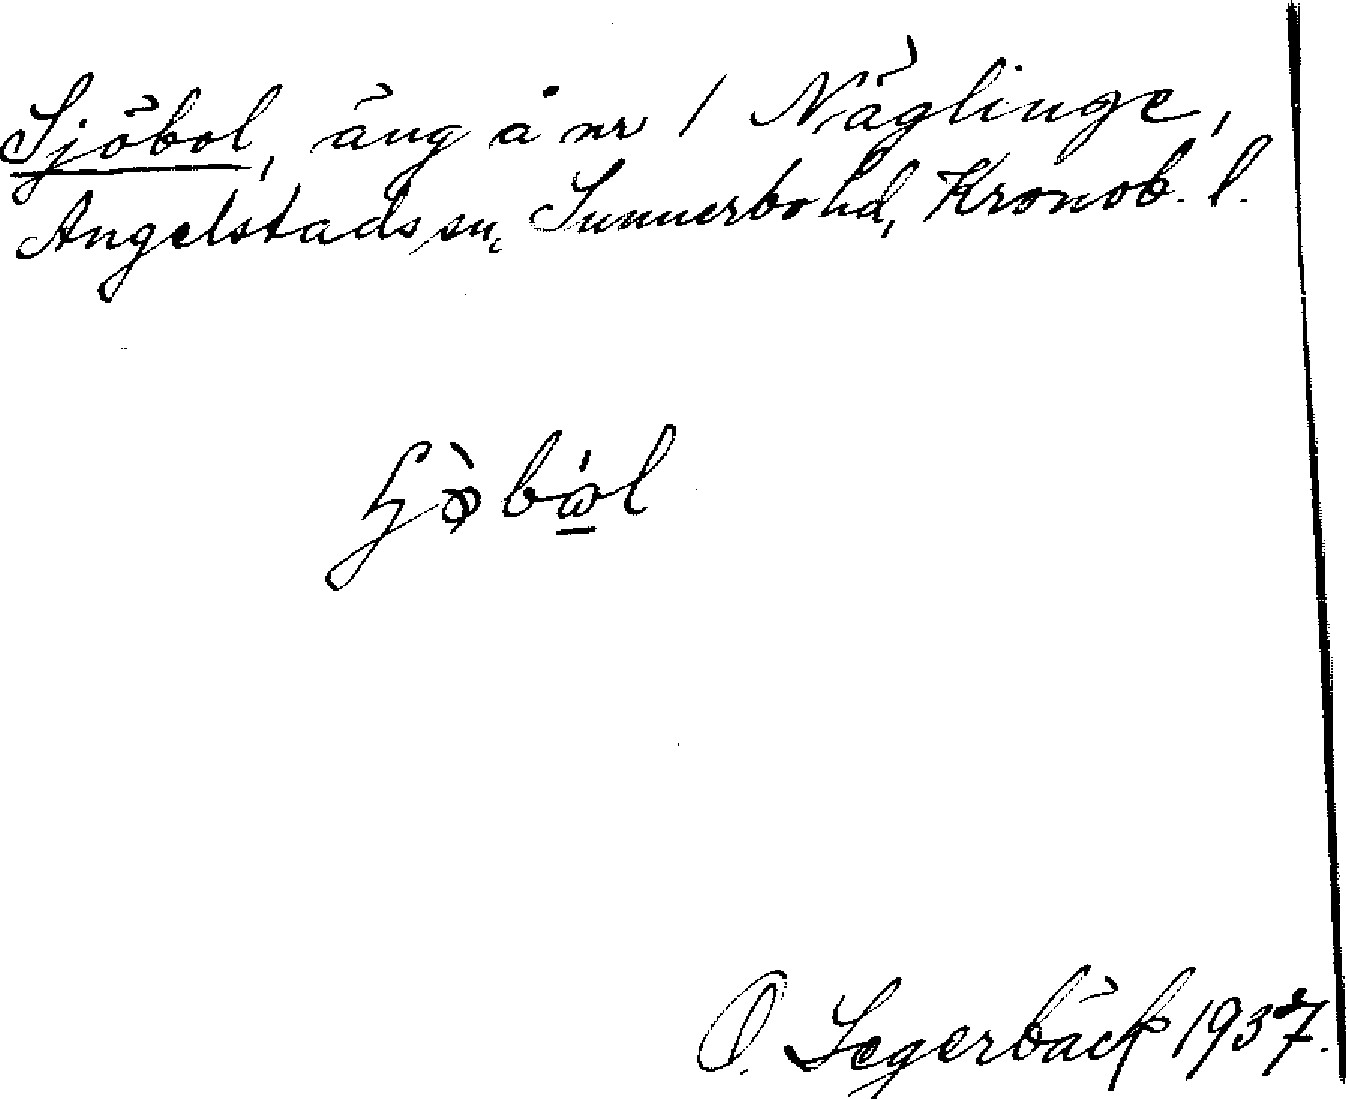 Sjöbol, äng å nr 1 Näglinge,
Angelstads sn, Sunnerbo hd, Kronob. l.
O. Segerbäck 1937.